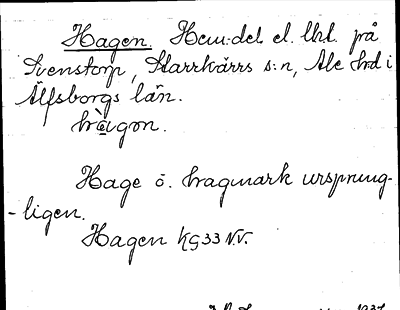 Hagen. Hem:del el. lht. på
Svenstorp, Starrkärrs s:n, Ale hd i
Älfsborgs län.
hàgon.
Hage o. hagmark ursprung-
-ligen.
Hagen KG33 N.V.